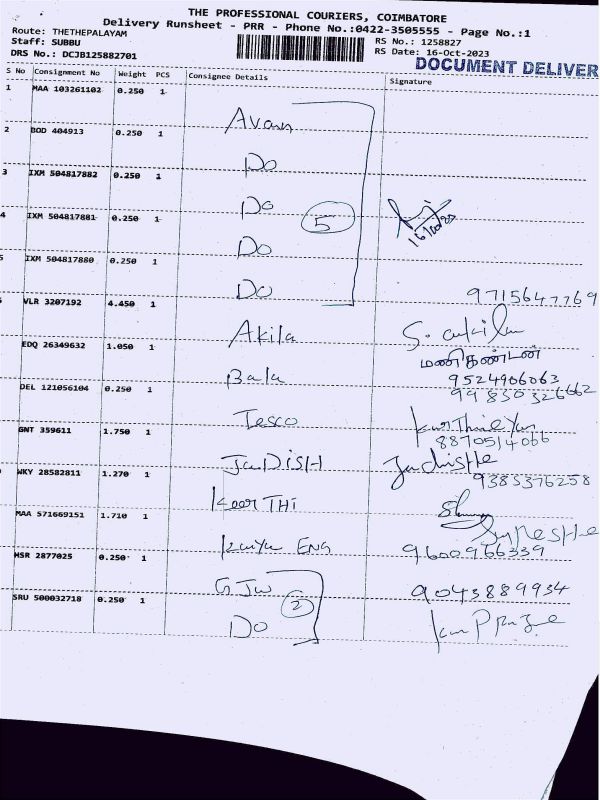 THE PROFESSIONAL COURIERS, COIMBATORE
Delivery Runsheet - PRR - Phone No.:0422-3505555 - Page No.:1
Route: THETHEPALAYAM RS No.: 1258827
Staff: SUBBU RS Date: 16-Oct-2023
DRS No.: DCJB125882701 DOCUMENT DELIVER
S No Consignment No Weight PCS Consignee Details Signature
1 MAA 103261102 0.250 1 Avann
2 BOD 404913 0.250 1 Do
3 IXM 504817882 0.250 1 Do
4 IXM 504817881 0.250 1 Do 5
5 IXM 504817880 0.250 1 Do 9715647769
VLR 3207192 4.450 1 Akila
EDQ 26349632 1.050 1 Bala மணிகண்டன்
9524906063
DEL 121056104 0.250 1 Tesco 99830326662
GNT 359611 1.750 1 JaDISH 8870514066
WKY 28582811 1.270 1 KOOrTHI 9385376258
MAA 571669151 1.710 1 ENG 9600966339
HSR 2877025 0.250 1 GJW 2 9043889934
SRU 500032718 0.250 1 Do